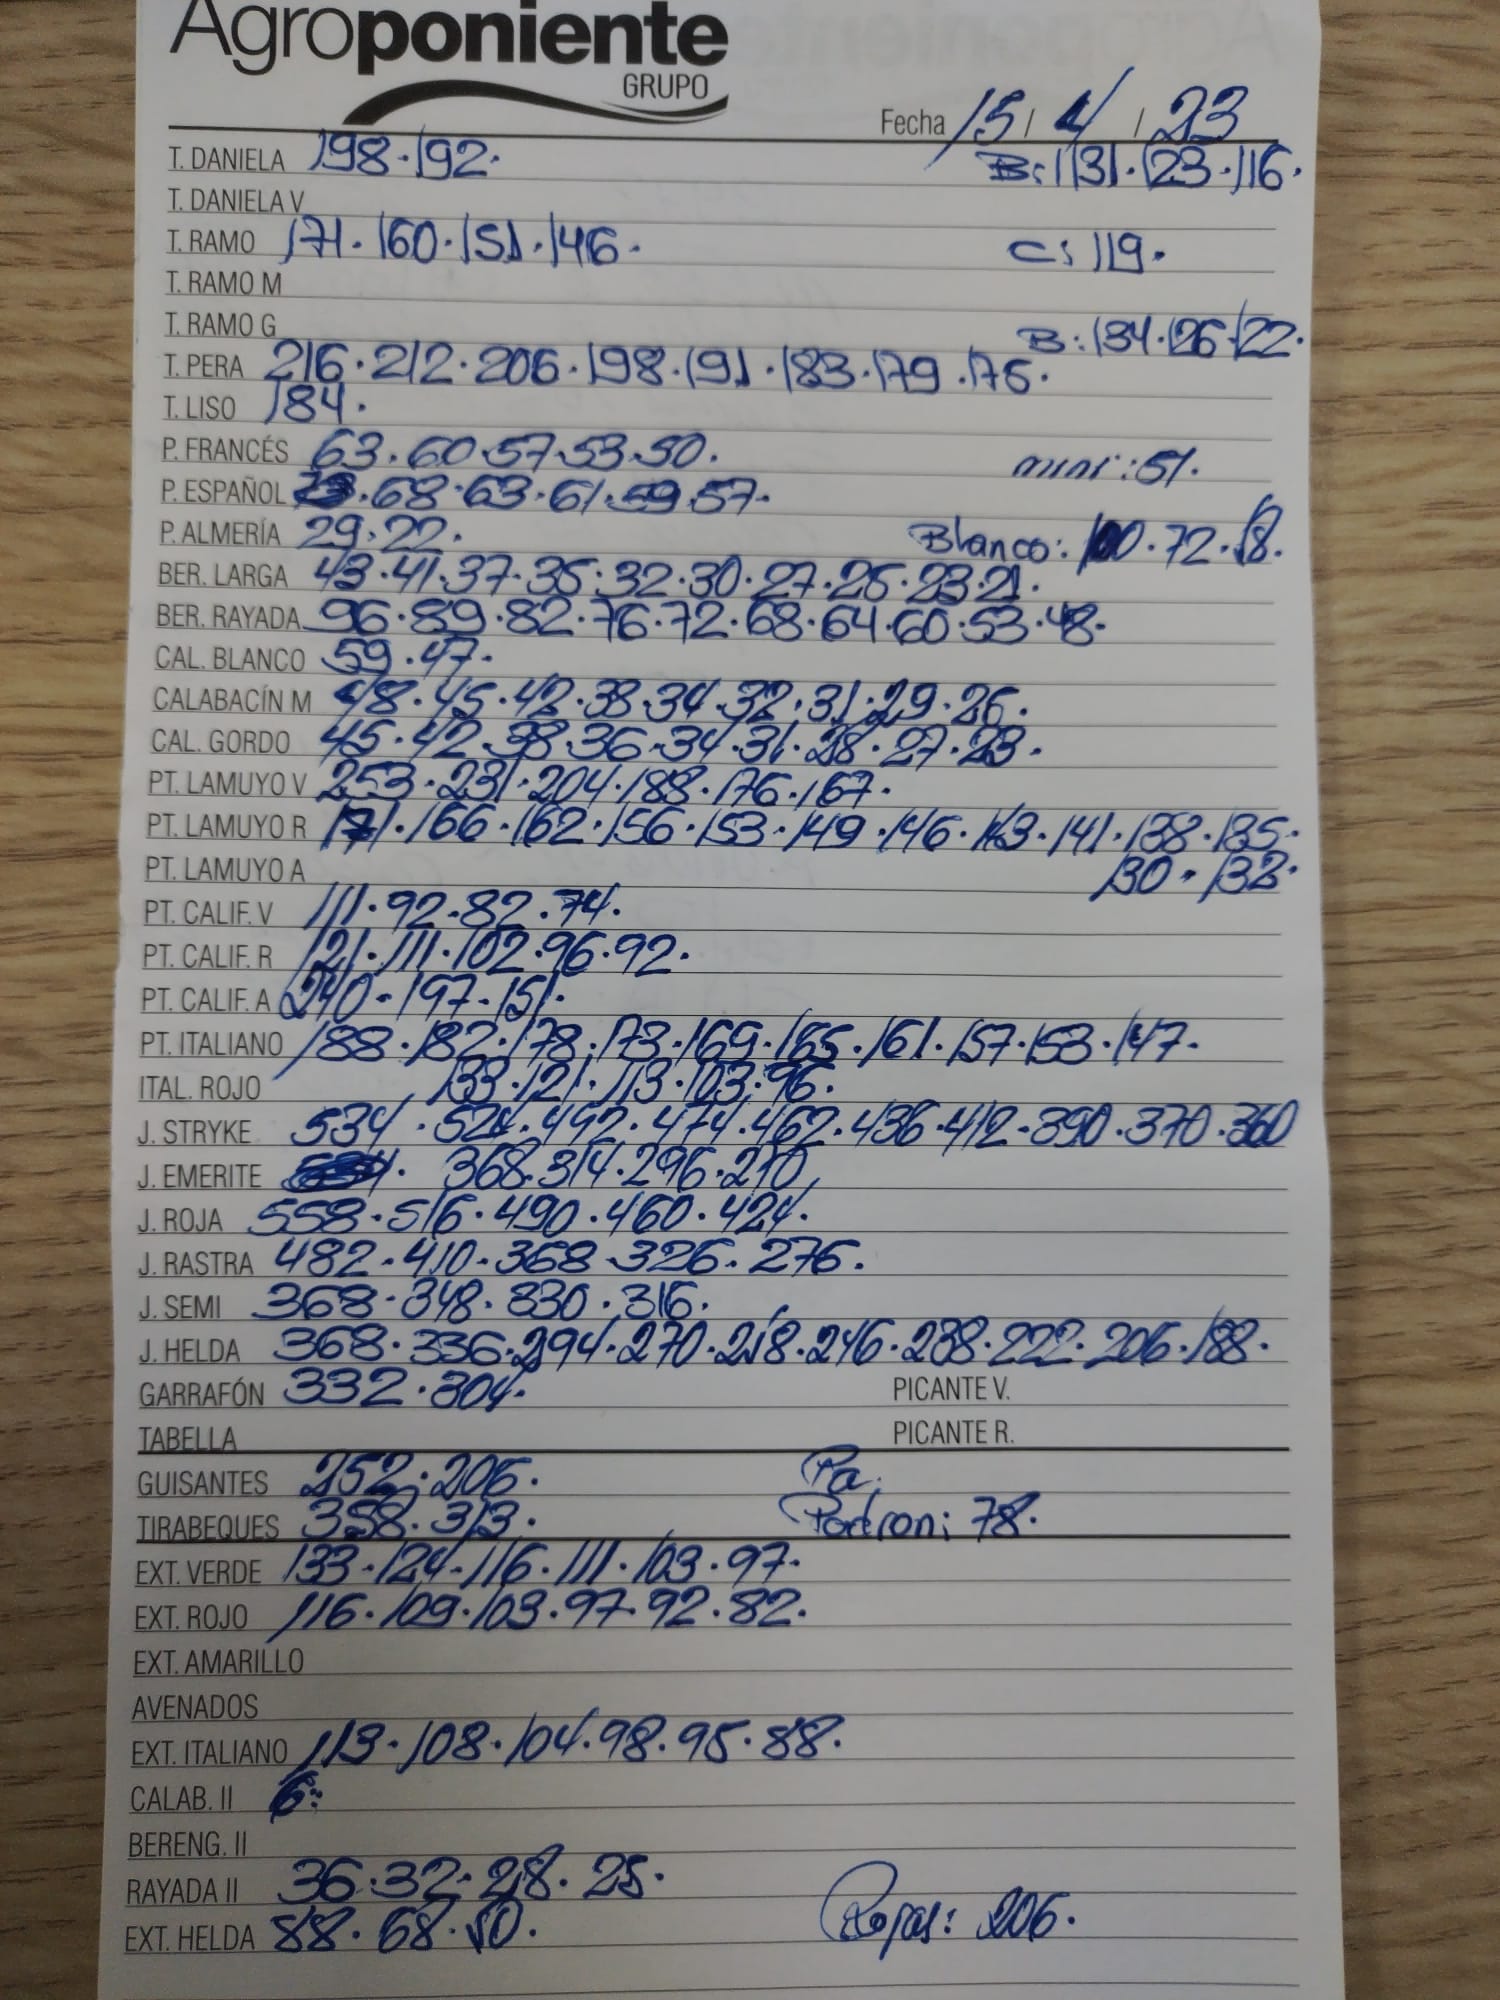 Agroponiente
GRUPO
Fecha 15 / 4 / 23
T. DANIELA 198·192· B: 131·123·116·
T. DANIELA V
T. RAMO 171·160·151·146· C: 119·
T. RAMO M
T. RAMO G B: 134·126·122·
T. PERA 216·212·206·198·191·183·179·176·
T. LISO 184·
P. FRANCÉS 63·60·57·53·50· mini: 51·
P. ESPAÑOL 73·68·63·61·59·57·
P. ALMERÍA 29·22· Blanco: 100·72·58·
BER. LARGA 43·41·37·35·32·30·27·25·23·21·
BER. RAYADA 96·89·82·76·72·68·64·60·53·48·
CAL. BLANCO 59·47·
CALABACÍN M 48·45·42·38·34·32·31·29·26·
CAL. GORDO 45·42·38·36·34·31·28·27·23·
PT. LAMUYO V 253·231·204·188·176·167·
PT. LAMUYO R 171·166·162·156·153·149·146·143·141·138·135·
PT. LAMUYO A 130·132·
PT. CALIF. V 111·92·82·74·
PT. CALIF. R 121·111·102·96·92·
PT. CALIF. A 240·197·151·
PT. ITALIANO 188·182·178·173·169·165·161·157·153·147·
ITAL. ROJO 133·121·113·103·96·
J. STRYKE 534·524·492·474·462·436·412·390·370·360
J. EMERITE 368·314·296·270
J. ROJA 558·516·490·460·424·
J. RASTRA 482·410·368·326·276·
J. SEMI 368·348·330·316·
J. HELDA 368·336·294·270·258·246·238·222·206·188·
GARRAFÓN 332·304· PICANTE V.
TABELLA PICANTE R.
GUISANTES 252·206· Pa.
TIRABEQUES 358·313· Padron: 78·
EXT. VERDE 133·124·116·111·103·97·
EXT. ROJO 116·109·103·97·92·82·
EXT. AMARILLO
AVENADOS
EXT. ITALIANO 113·108·104·98·95·88·
CALAB. II 6·
BERENG. II
RAYADA II 36·32·28·25·
EXT. HELDA 88·68·50· Rojas: 206·